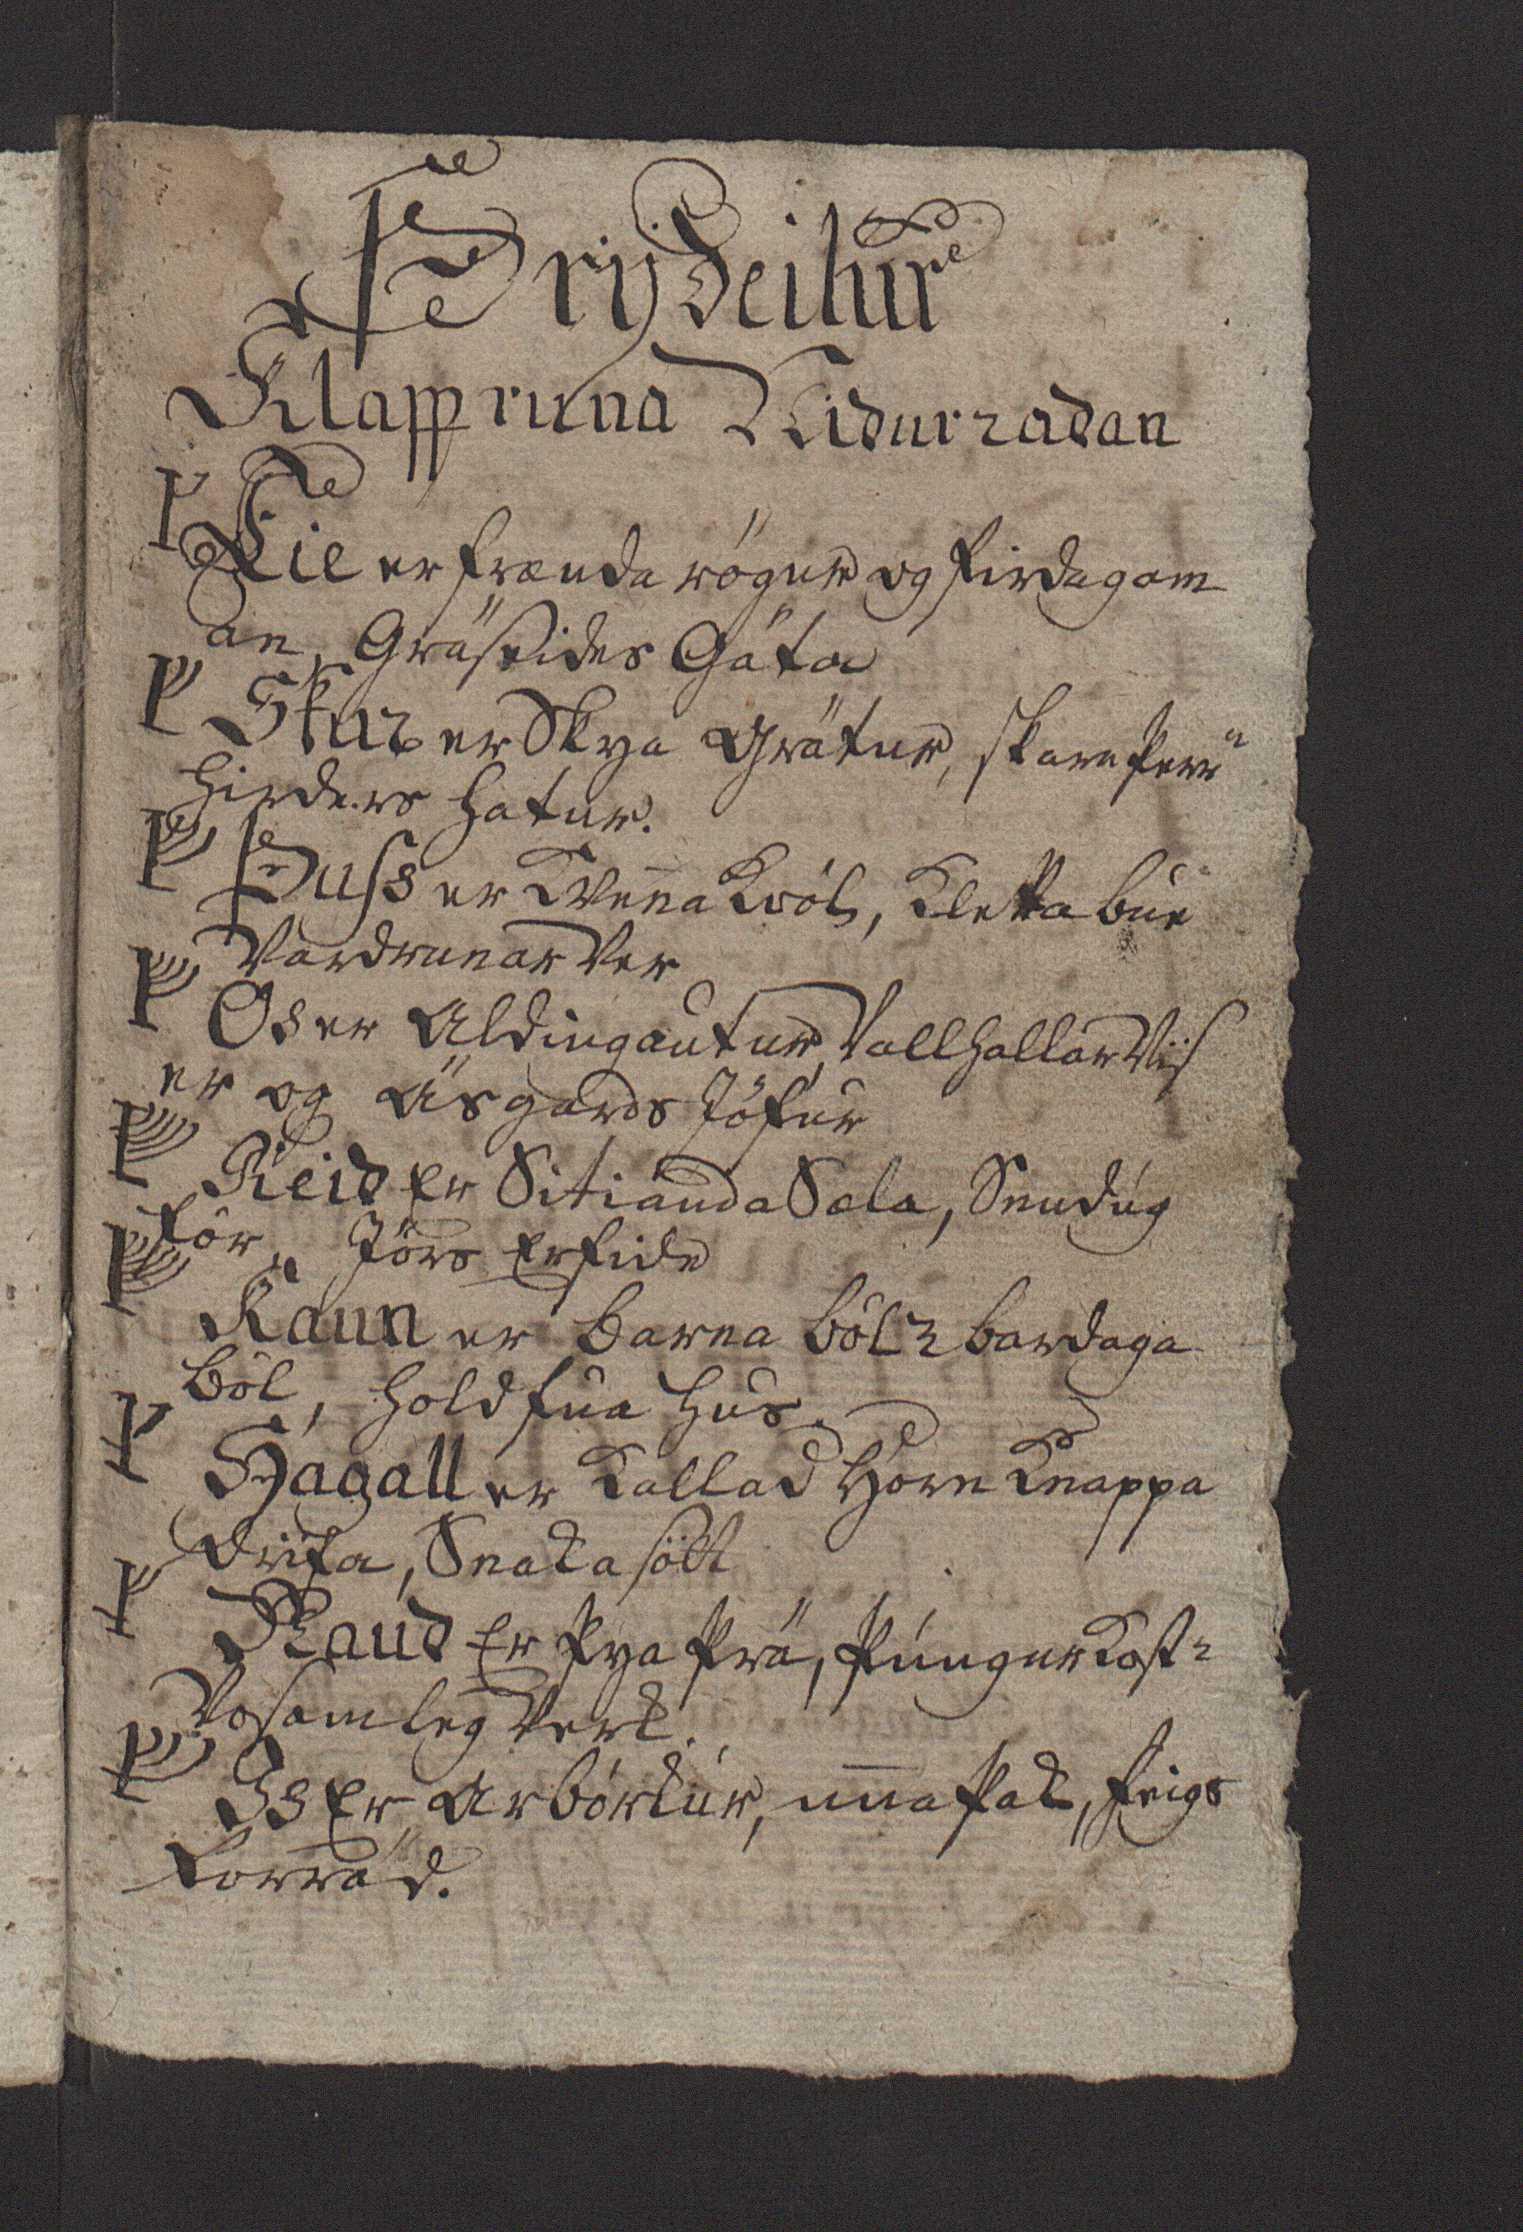 Þrÿdeilur
Klapp runa Nidurradan
Fie er frænda rögur og firda gam
an, Gräseides Gáta
Skur er Skya Grätur, skara þerr
hirders hatur.
Þuss er Kvenna Kvöl, Kletta bue
Vardrunar Ver
Os er Aldingautur, Vallhallar Vijs
er og Äsgards Jöfur
Reid Er Sitianda Sæla, Snudug
för, Jörs Erfide
Kaun er barna böl & bardaga
böl, hold fua hus.
Hagall er Kallad Korn Knappa
drifa, Snaka sött
Naud Er þya þrä, þungur Kostr
Vosamleg Verk.
Is Er Arbörkur, unna þak, feigs
forrad.